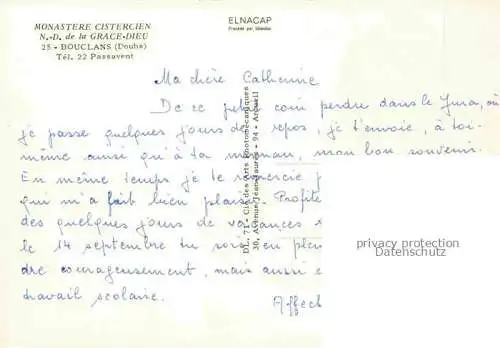 MONASTERE CISTERCIEN
N.-D. de la GRACE-DIEU
25 - BOUCLANS (Doubs)
Tél. 22 Passavent
ELNACAP
Ma chère Catherine
De ce petit coin perdu dans le Jura, où
je passe quelques jours de repos, je t'envoie, à toi-
même ainsi qu'à ta maman, mon bon souvenir.
En même temps je te remercie
qui m'a fait bien plaisir. Profite
des quelques jours de vacances
le 14 septembre tu seras en plei
dre courageusement, mais aussi e
travail scolaire.
Affect
DL, 71 - Cie des Arts Photomécaniques
30, Avenue Jean-Jaurès - 94 - Arcueil
privacy protection
Datenschutz